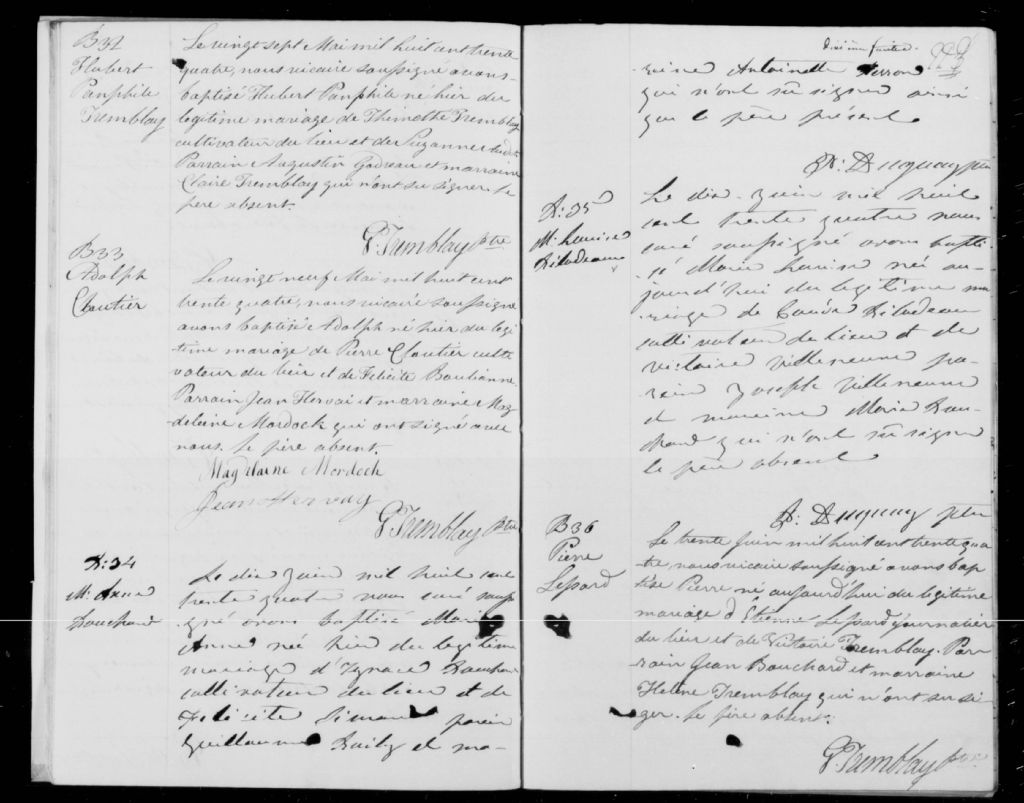 B32
Hubert
Panphile
Tremblay
Le vingt sept Mai mil huit cent trente
quatre, nous vicaire soussigné avons
baptisé Hubert Panphile né hier du
legitime mariage de Thimothe Tremblay
cultivateur du lieu et de Suzanne
Parrain Augustin Godreau et marraine
Claire Tremblay qui n'ont su signer. le
pere absent.
G Tremblay Ptre
B33
Adolph
Cloutier
Le vingt neuf Mai mil huit cent
trente quatre, nous vicaire soussigné
avons baptisé Adolph né hier du legi-
time mariage de Pierre Cloutier culti-
vateur du lieu et de Felicite Boulianne.
Parrain Jean Hervai et marraine Mag-
delaine Mordock qui ont signé avec
nous. le père absent.
Magdelaine Mordoch
Jean Hervay
G Tremblay Ptre
B:34
M: Anne
Bouchard
Le dix juin mil huit cent
trente quatre nous curé sous-
igné avons baptisé Marie
Anne née hier du legitime
mariage d'Ignace Bouchard
cultivateur du lieu et de
Félicité Simard parain
Guillaume Baily et ma-
dixième feuillet.
raine Antoinette
qui n'ont su signer ainsi
que le père présent
A: Duguay ptre
B:35
M: Louise
Bilodeau
Le dix juin mil huit
cent trente quatre nous
curé soussigné avons bapti-
sé Marie Louise née au-
jourd'hui du legitime ma-
riage de Bilodeau
cultivateur du lieu et de
Victoire Villeneuve pa-
rain Joseph Villeneuve
et maraine Marie Bou-
chard qui n'ont su signer
le père absent
A: Duguay ptre
B36
Pierre
Lessard
Le trente Juin mil huit cent trente qua-
tre, nous vicaire soussigné avons bap-
tisé Pierre né aujourd'hui du legitime
mariage d'Etienne Lessard journalier
du lieu et de Victoire Tremblay. Par-
rain Jean Bouchard et marraine
Helene Tremblay qui n'ont su si-
gner. le père absent.
G Tremblay Ptre